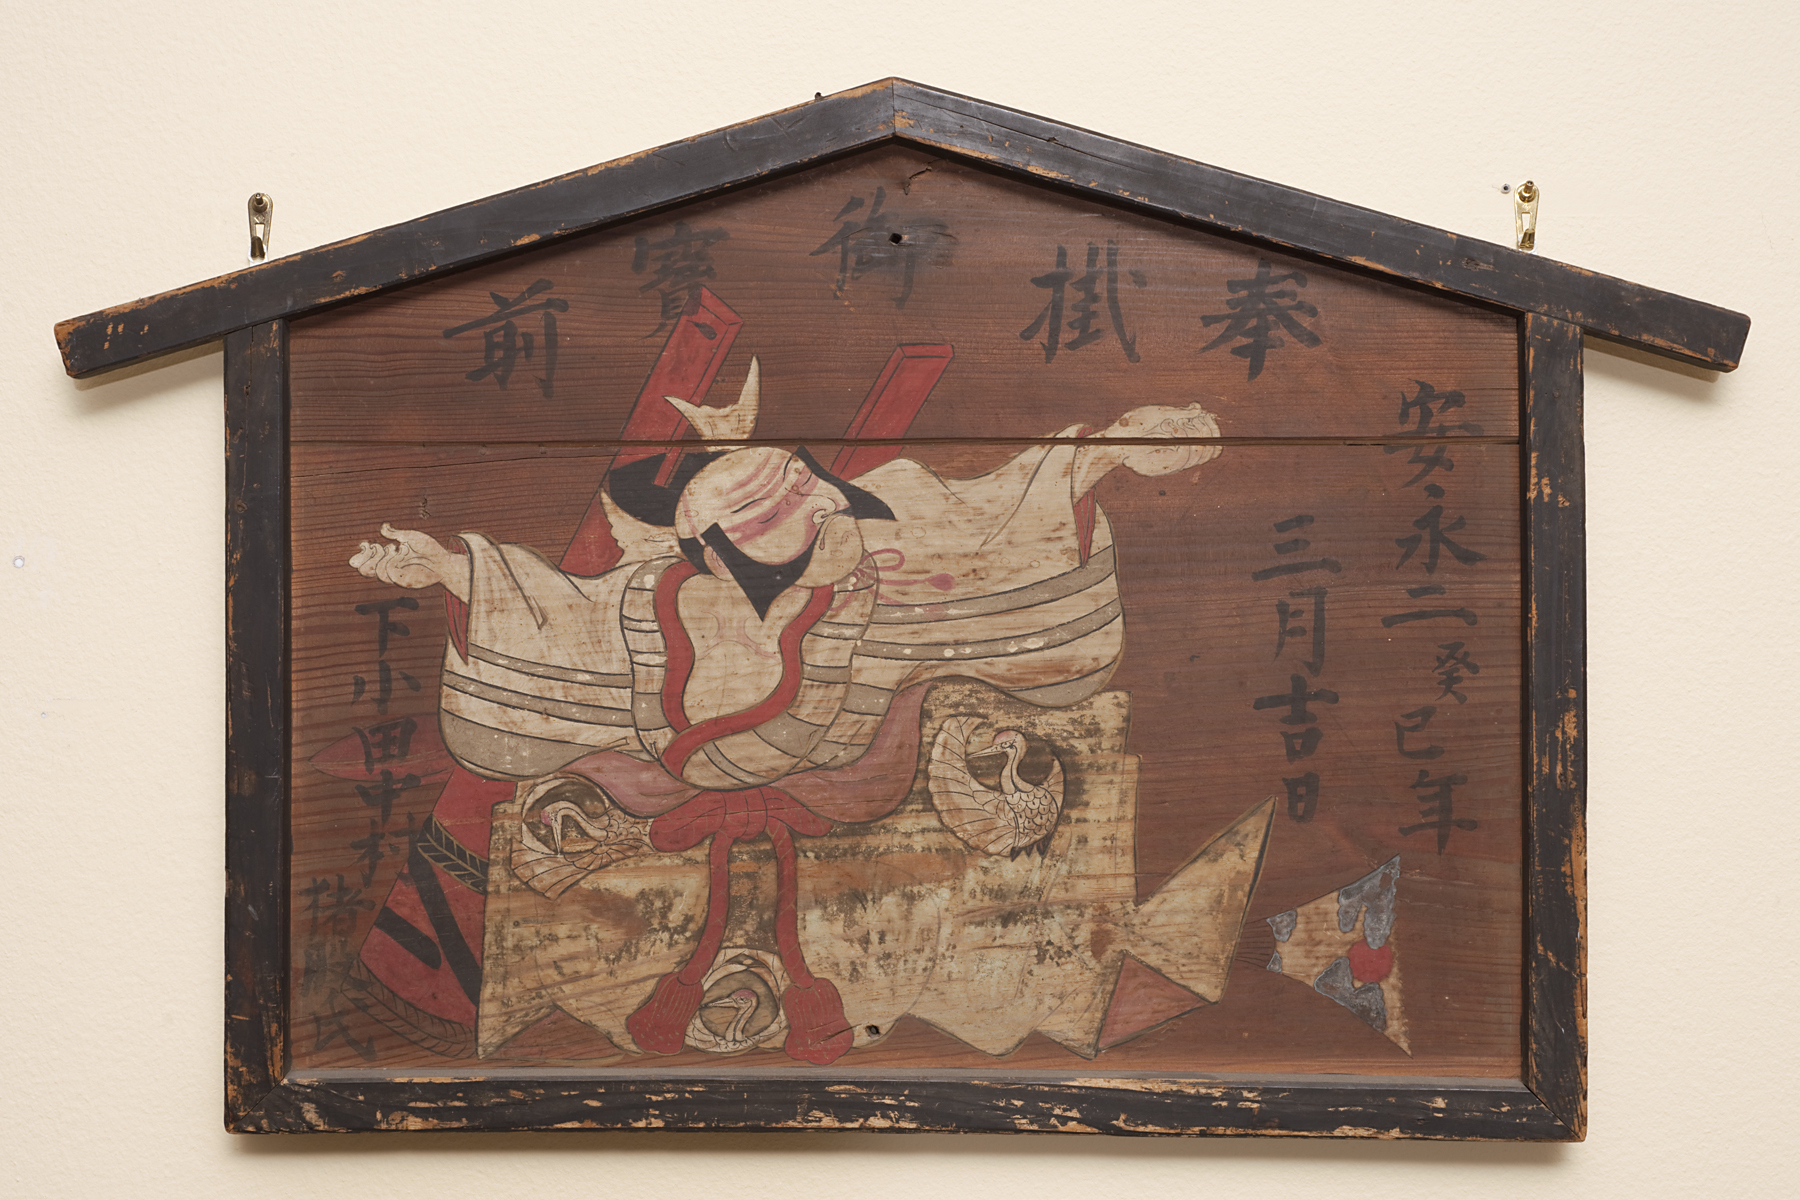 奉掛御寳前
安永二癸巳年
三月吉日
下小田中村
猪股氏